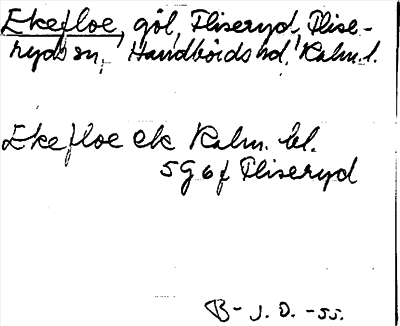 Ekefloe, göl, Fliseryd, Flise-
ryds sn, Handbörds hd, Kalm. l.
Ekefloe ek Kalm. bl.
5 G 6 f Fliseryd
B- J. D. -55.